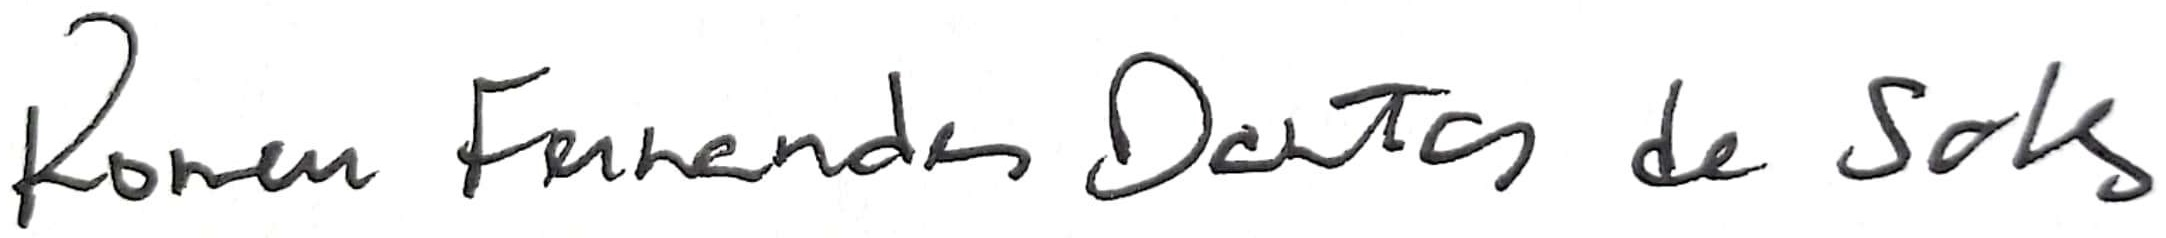 Romeu Fernandes Dantas de Sales